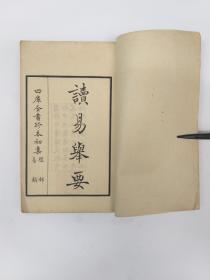 讀易舉要
四庫全書珍本初集 經部
易類